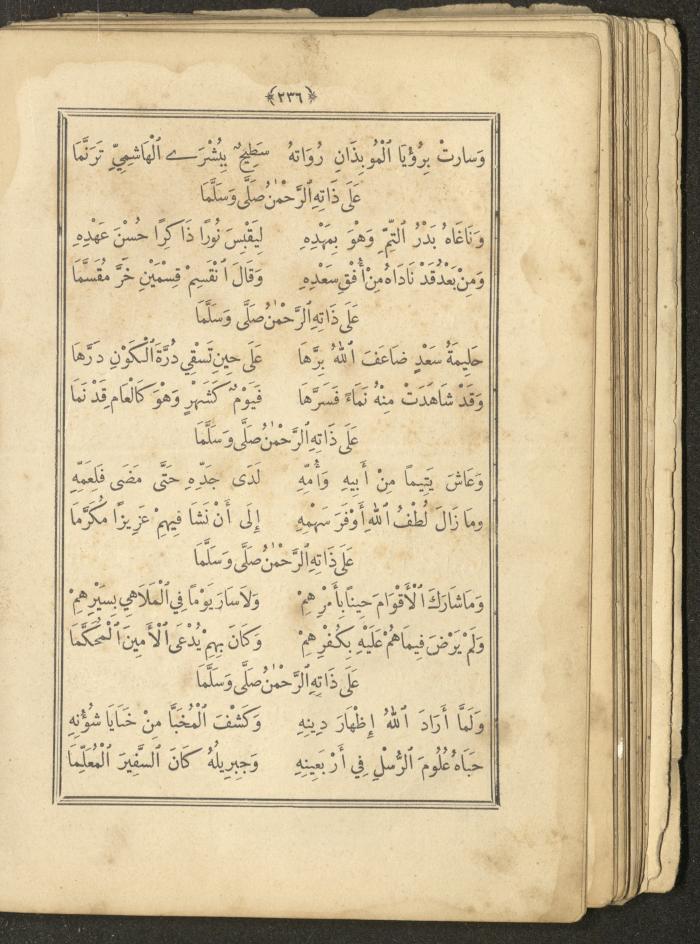 ﴿٢٣٦﴾
وَسارتْ بِرُؤْيَا ٱلْمُوبِذَانِ رُوَاتهُ سَطِيحٌ بِبُشْرَے ٱلْهَاشِمِيِّ تَرَنَّمَا
عَلَى ذَاتِهِ ٱلرَّحْمٰنُ صَلَّى وَسَلَّمَا
وَنَاغَاهُ بَدْرُ ٱلتِّمِّ وَهْوَ بِمَهْدِهِ لِيَقْبِسَ نُورًا ذَاكِرًا حُسْنَ عَهْدِهِ
وَمِنْ بَعْدُ قَدْ نَادَاهُ مِنْ أُفْقِ سَعْدِهِ وَقَالَ ٱنْقَسِمْ قِسْمَيْنِ خَرَّ مُقَسَّمَا
عَلَى ذَاتِهِ ٱلرَّحْمٰنُ صَلَّى وَسَلَّمَا
حَلِيمَةُ سَعْدٍ ضاعَفَ ٱللهُ بِرَّهَا عَلَى حِينِ تَسْقِي دُرَّةَ ٱلْكَوْنِ دَرَّهَا
وَقَدْ شاهَدَتْ مِنْهُ نَمَاءً فَسَرَّهَا فَيَوْمٌ كَشَهْرٍ وَهْوَ كَالْعَامِ قَدْ نَمَا
عَلَى ذَاتِهِ ٱلرَّحْمٰنُ صَلَّى وَسَلَّمَا
وَعَاشَ يَتِيماً مِنْ أَبِيهِ وَأُمِّهِ لَدَى جَدِّهِ حَتَّى مَضَى فَلِعَمِّهِ
وما زَالَ لُطْفُ ٱللهِ أَوْفَرَ سَهْمِهِ إِلَى أَنْ نَشَا فِيهِمْ عَزِيزًا مُكَرَّمَا
عَلَى ذَاتِهِ ٱلرَّحْمٰنُ صَلَّى وَسَلَّمَا
وَمَا شارَكَ ٱلْأَقْوَامَ حِيناً بِأَمْرِهِمْ وَلاَ سارَ يَوْمًا فِي ٱلْمَلاَهِي بِسَيْرِهِمْ
وَلَمْ يَرْضَ فِيمَا هُمْ عَلَيْهِ بِكُفْرِهِمْ وَكَانَ بِهِمْ يُدْعَى ٱلْأَمِينَ ٱلْمُحَكَّمَا
عَلَى ذَاتِهِ ٱلرَّحْمٰنُ صَلَّى وَسَلَّمَا
وَلَمَّا أَرَادَ ٱللهُ إِظْهَارَ دِينِهِ وَكَشْفَ ٱلْمُخَبَّا مِنْ خَبَايَا شُؤُنِهِ
حَبَاهُ عُلُومَ ٱلرُّسْلِ فِي أَرْبَعِينِهِ وَجِبرِيلُهُ كَانَ ٱلسَّفِيرَ ٱلْمُعَلِّمَا